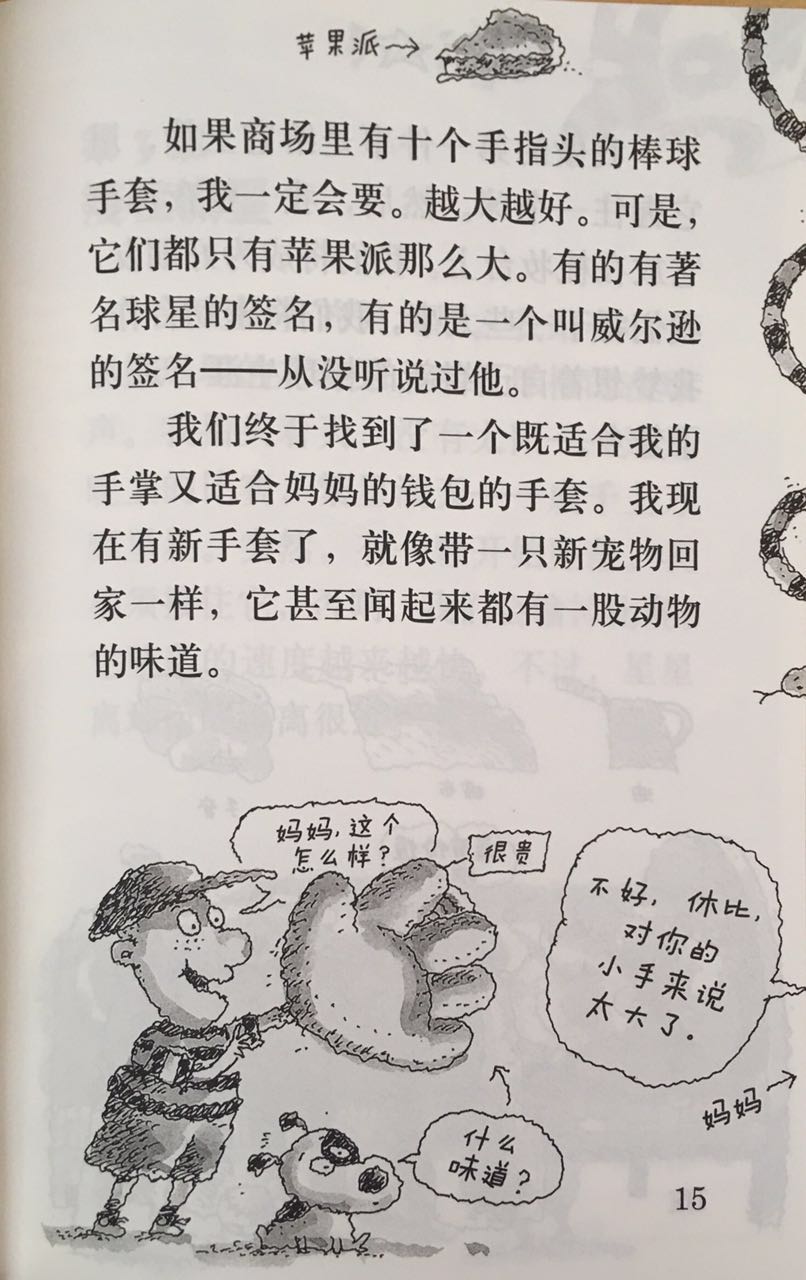 苹果派→
如果商场里有十个手指头的棒球
手套，我一定会要。越大越好。可是，
它们都只有苹果派那么大。有的有著
名球星的签名，有的是一个叫威尔逊
的签名——从没听说过他。
我们终于找到了一个既适合我的
手掌又适合妈妈的钱包的手套。我现
在有新手套了，就像带一只新宠物回
家一样，它甚至闻起来都有一股动物
的味道。
妈妈，这个
怎么样？
很贵
不好，休比，
对你的
小手来说
太大了。
妈妈
什么
味道？
15